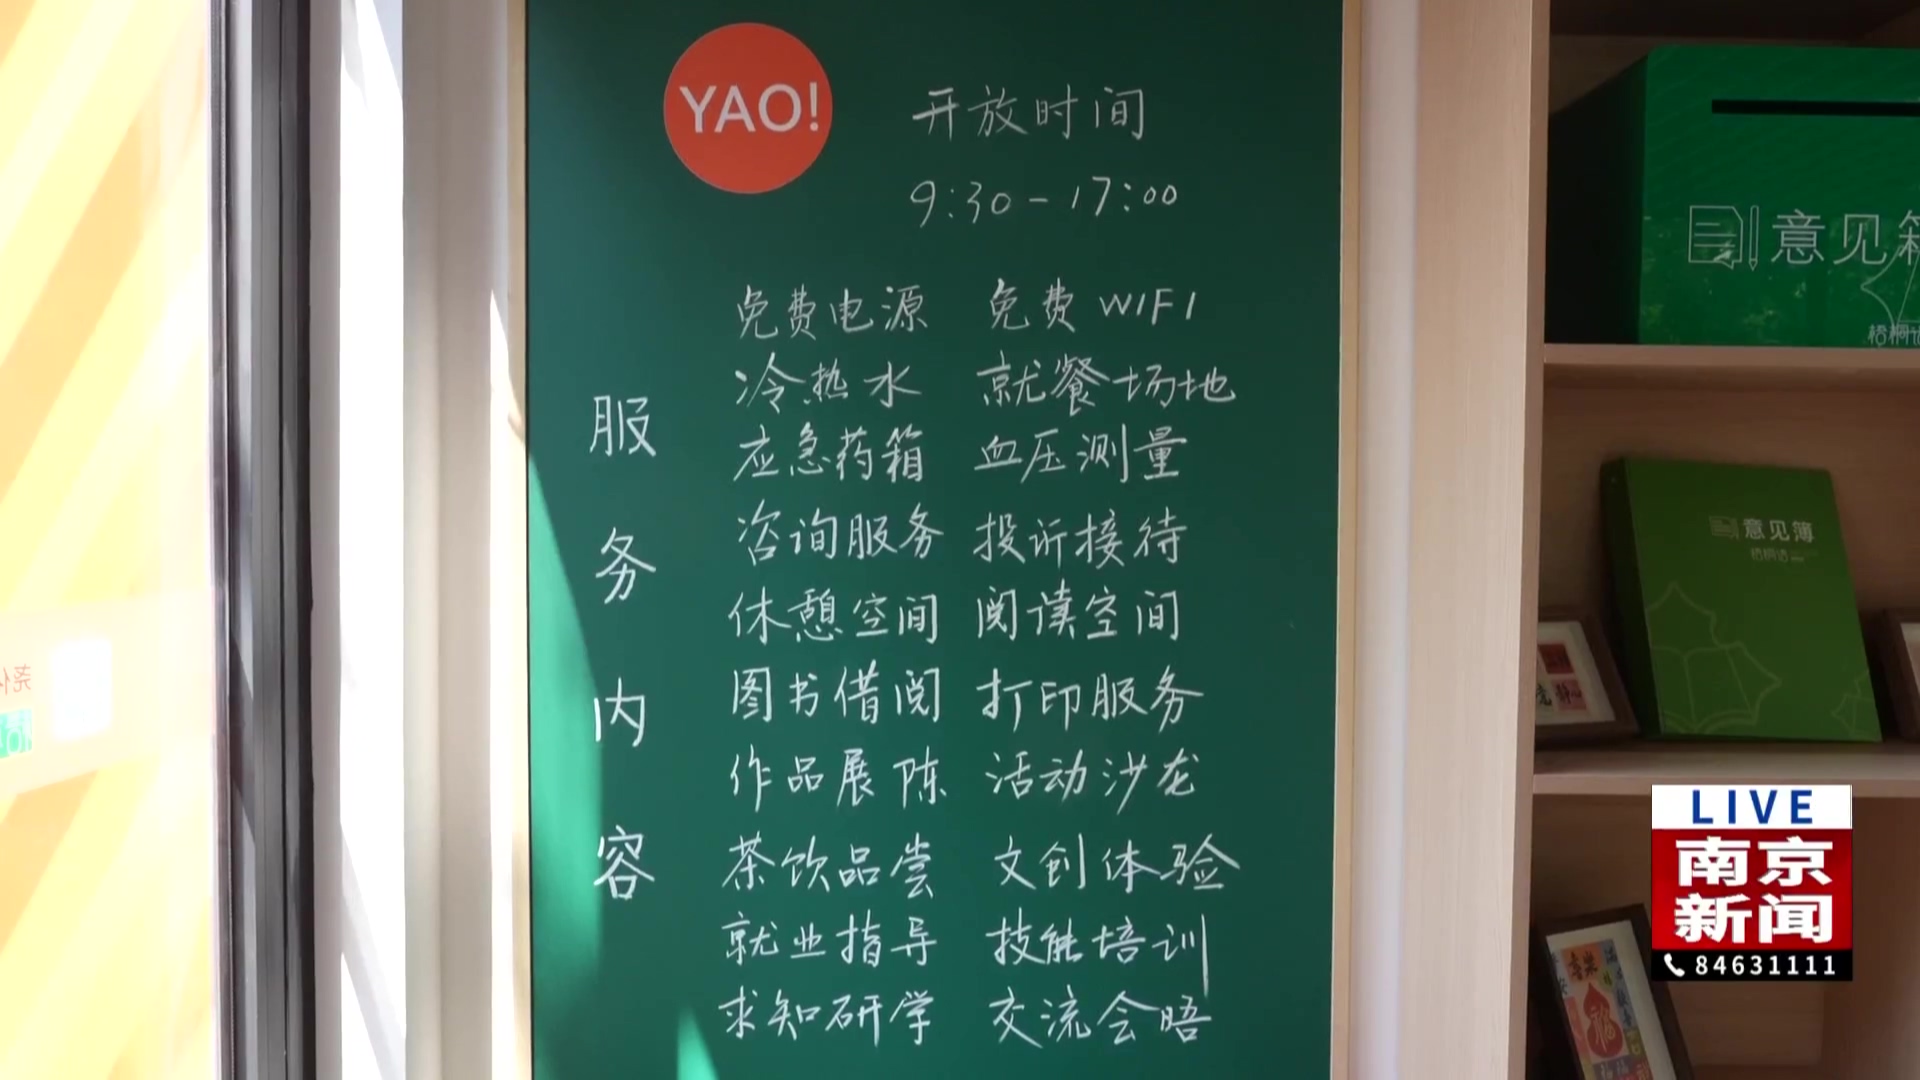 YAO!
开放时间
9:30-17:00
服务内容
免费电源 免费WIFI
冷热水 就餐场地
应急药箱 血压测量
咨询服务 投诉接待
休憩空间 阅读空间
图书借阅 打印服务
作品展陈 活动沙龙
茶饮品尝 文创体验
就业指导 技能培训
求知研学 交流会晤
意见箱
意见簿
LIVE
南京
新闻
84631111
福